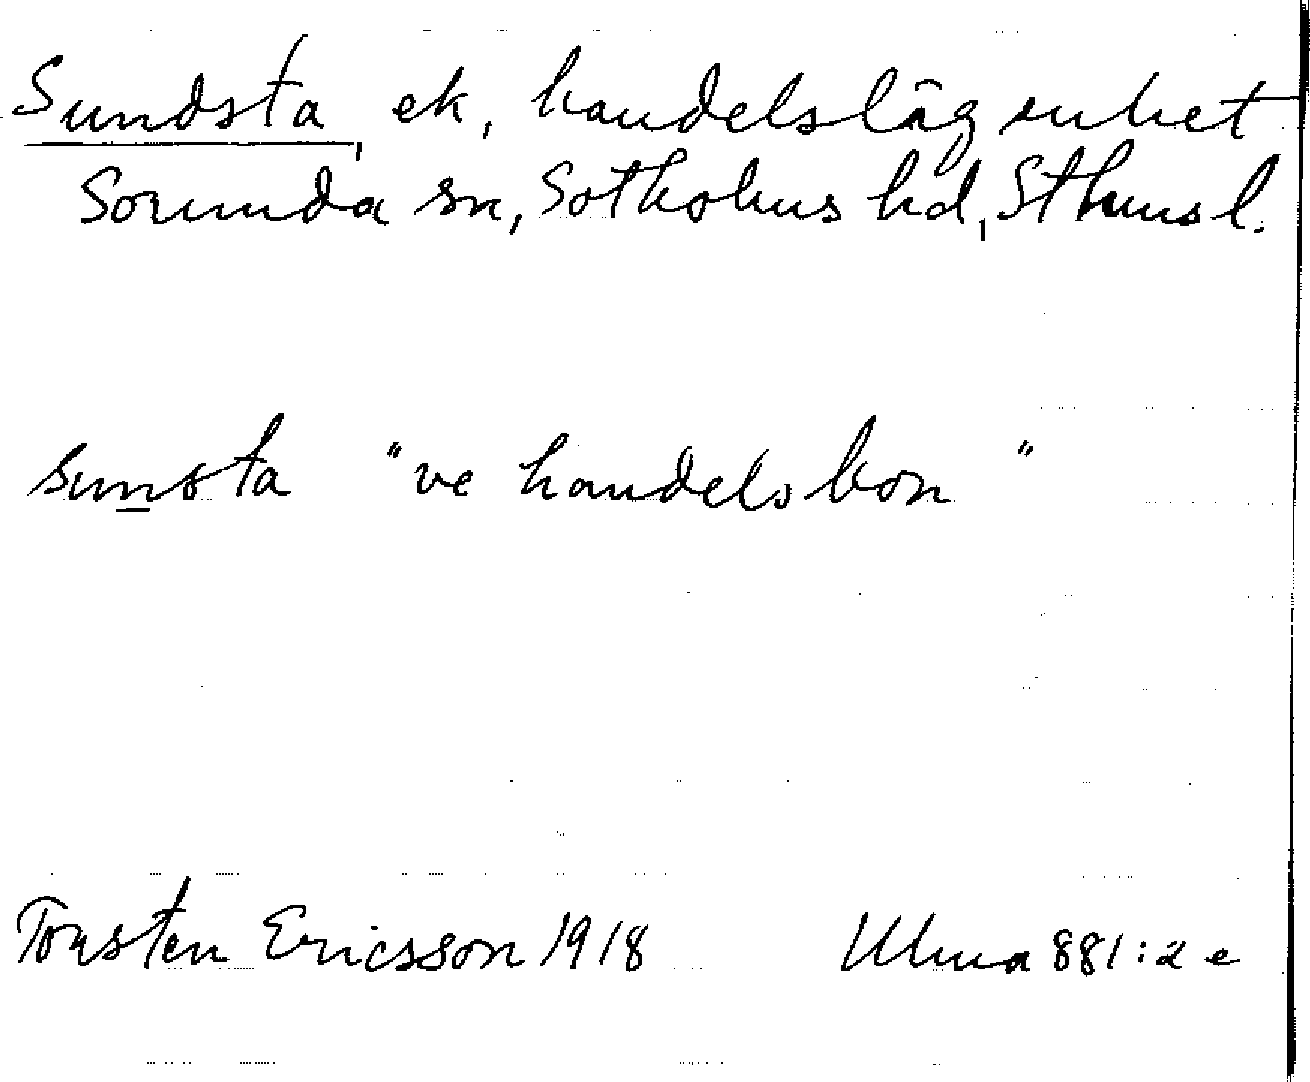 Sundsta, ek, handelslägenhet
Sorunda sn, Sotholms hd, Sthms l.
sunsta "ve handelsbon"
Torsten Ericsson 1918 Ulma 881:2 e